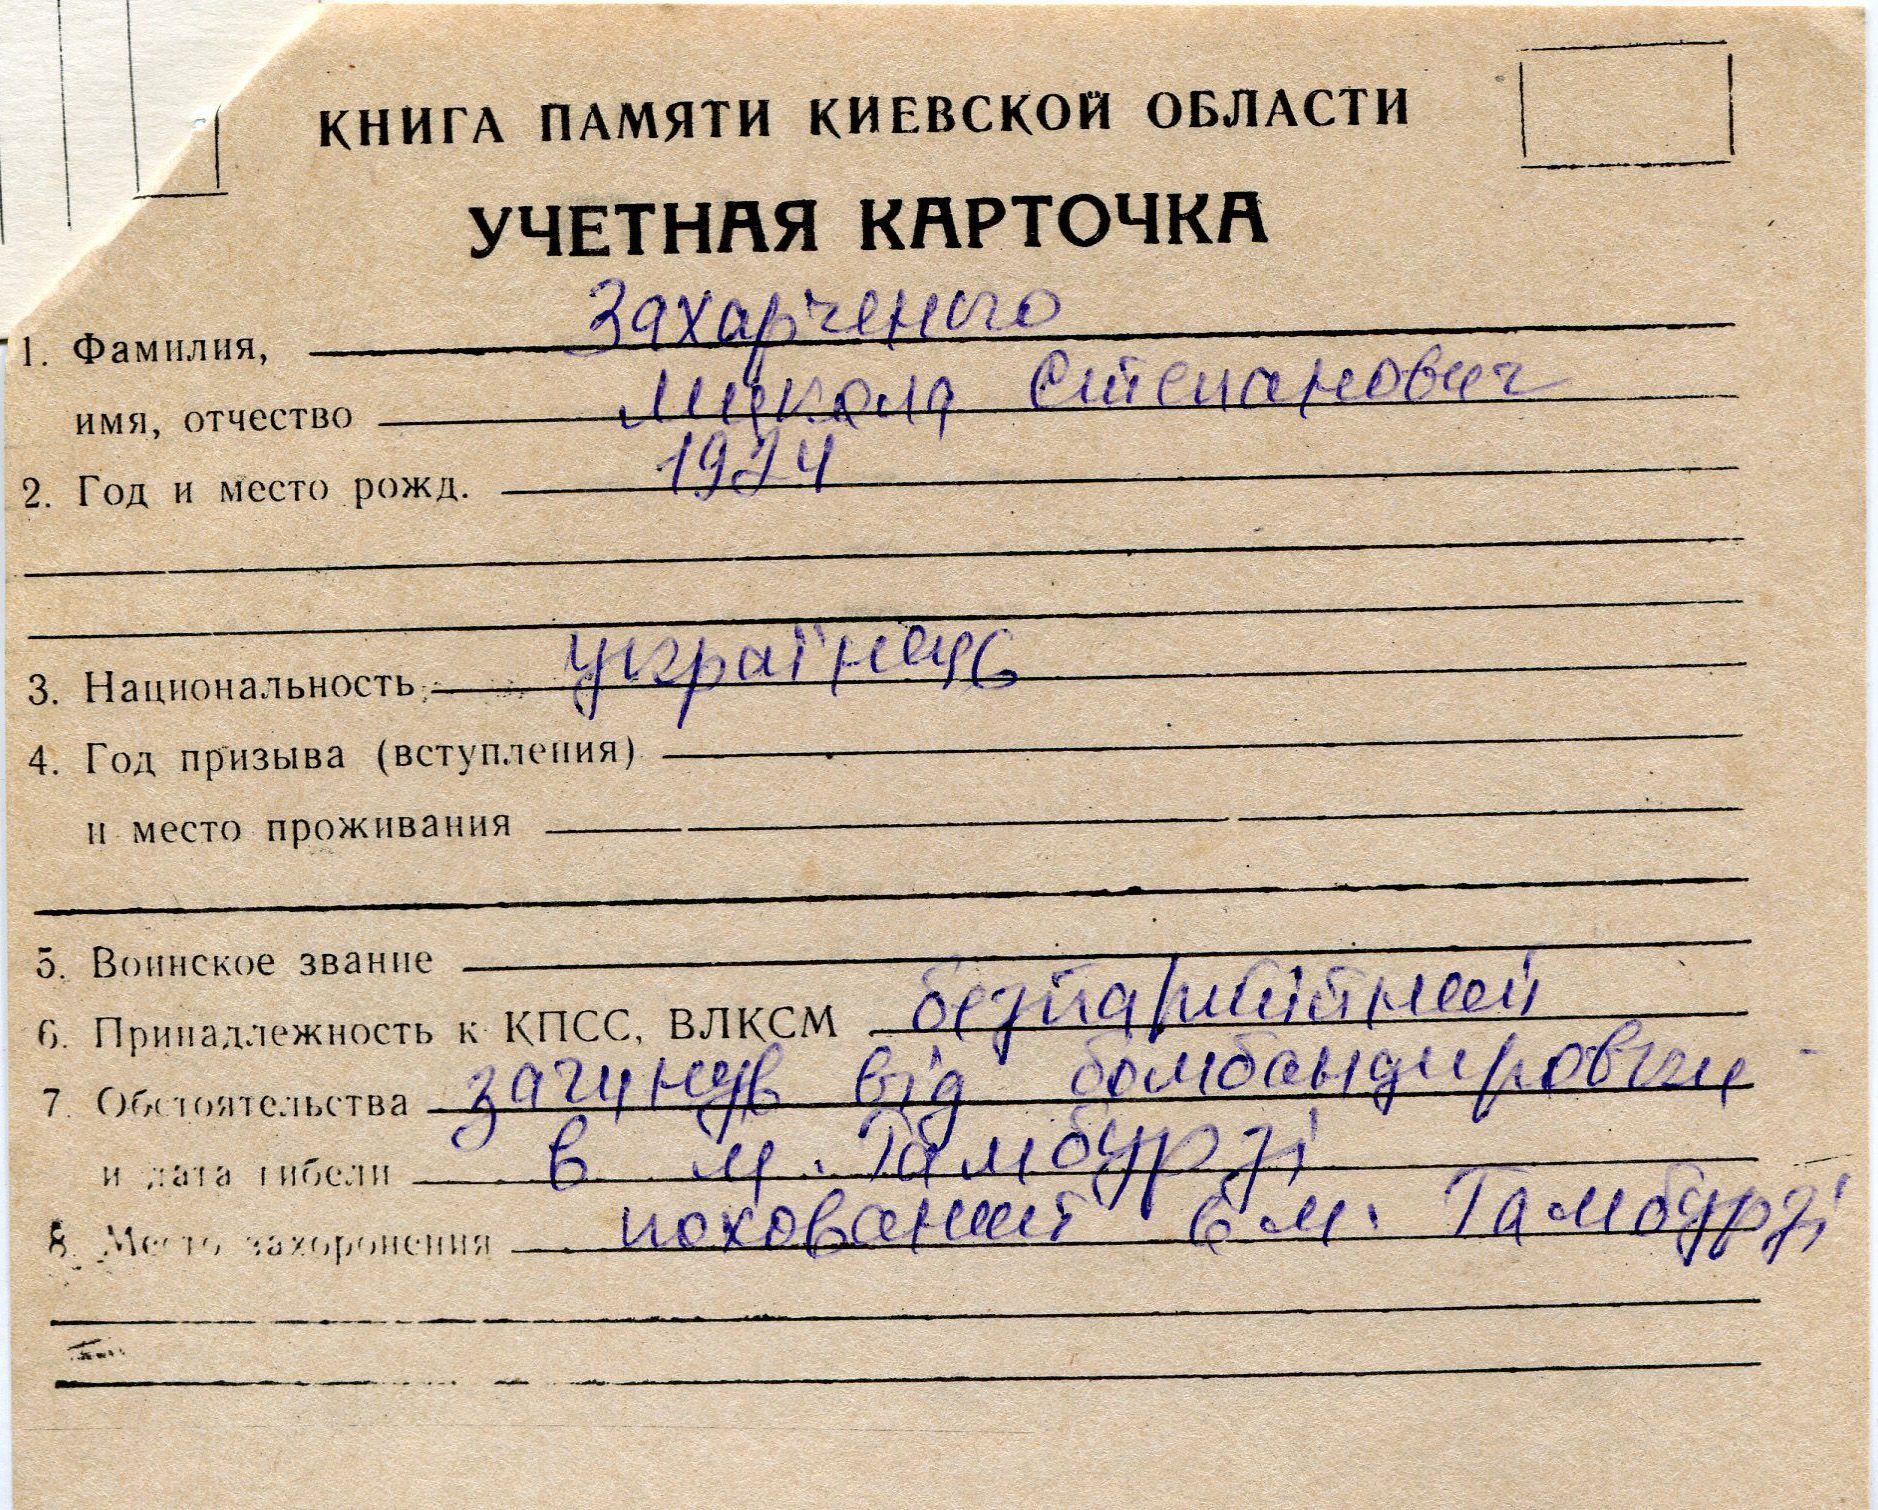 КНИГА ПАМЯТИ КИЕВСКОЙ ОБЛАСТИ
УЧЕТНАЯ КАРТОЧКА
1. Фамилия, Захарченко
имя, отчество Микола Степанович
2. Год и место рожд. 1924
3. Национальность українець
4. Год призыва (вступления)
и место проживания
5. Воинское звание
6. Принадлежность к КПСС, ВЛКСМ безпартійний
7. Обстоятельства загинув від бомбандировки
и дата гибели в м. Гамбурзі
8. Место захоронения похований в м. Гамбурзі